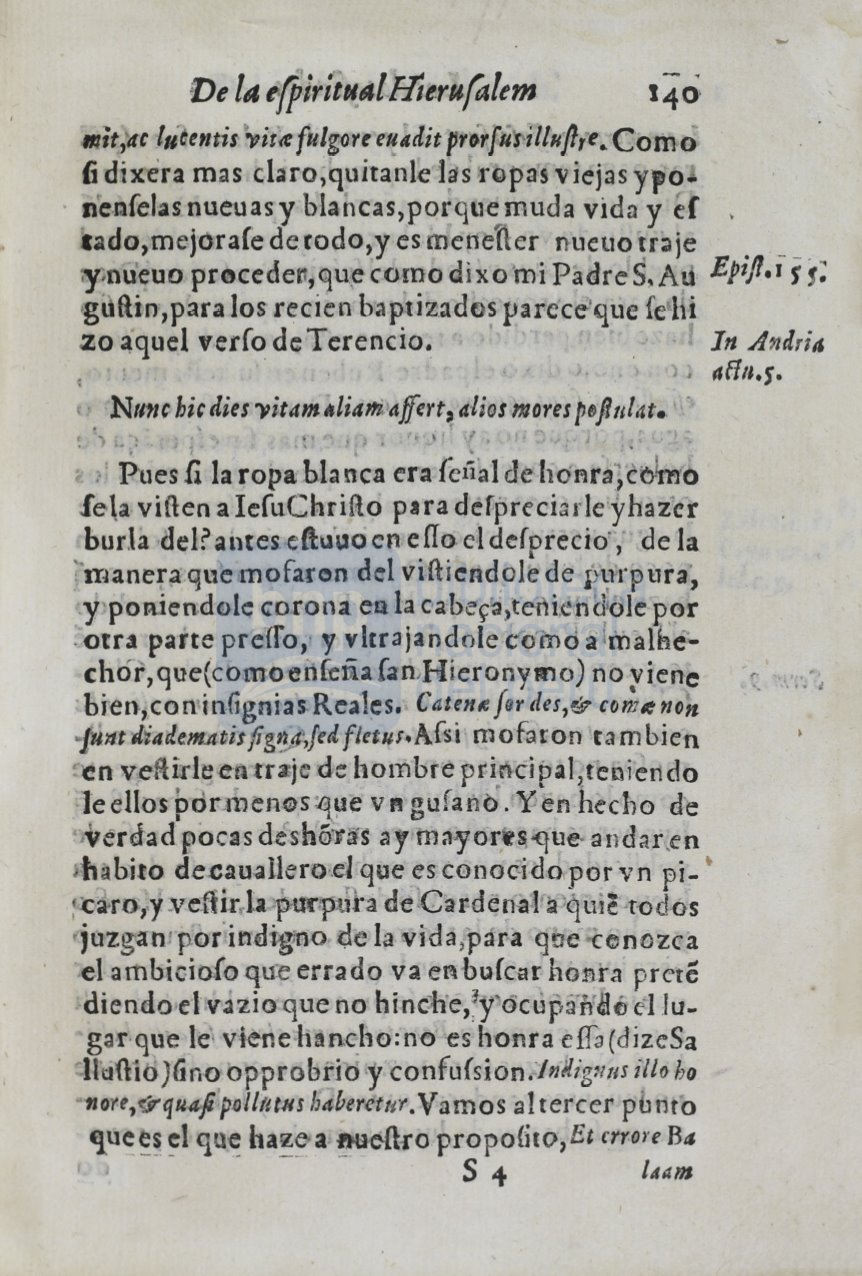 De la eſpiritual Hieruſalem 140
mit, ac lucentis vitæ fulgore euadit prorſus illuſtre. Como
ſi dixera mas claro, quitanle las ropas viejas y po-
nenſelas nueuas y blancas, porque muda vida y eſ
tado, mejoraſe de todo, y es meneſter nueuo traje
y nueuo proceder, que como dixo mi Padre S. Au
guſtin, para los recien baptizados parece que ſe hi
zo aquel verſo de Terencio.
Epiſt. 155.
In Andria
actu. 5.
Nunc hic dies vitam aliam affert, alios mores poſtulat.
Pues ſi la ropa blanca era ſeñal de honra, como
ſela viſten a Ieſu Chriſto para deſpreciarle y hazer
burla del? antes eſtuuo en eſſo el deſprecio, de la
manera que mofaron del viſtiendole de purpura,
y poniendole corona en la cabeça, teniendole por
otra parte preſſo, y vltrajandole como a malhe-
chor, que (como enſeña ſan Hieronymo) no viene
bien, con inſignias Reales. Catenæ ſordes, & comæ non
ſunt diadematis ſigna, ſed fletus. Aſsi mofaron tambien
en veſtirle en traje de hombre principal, teniendo
le ellos por menos que vn guſano. Y en hecho de
verdad pocas deshõras ay mayores que andar en
habito de cauallero el que es conocido por vn pi-
caro, y veſtir la purpura de Cardenal a quiẽ todos
juzgan por indigno de la vida, para que conozca
el ambicioſo que errado va en buſcar honra pretẽ
diendo el vazio que no hinche, y ocupando el lu-
gar que le viene hancho: no es honra eſſa (dize Sa
lluſtio) ſino opprobrio y confuſsion. Indignus illo ho
nore, & quaſi pollutus haberetur. Vamos al tercer punto
que es el que haze a nueſtro propoſito, Et errore Ba
S 4 laam